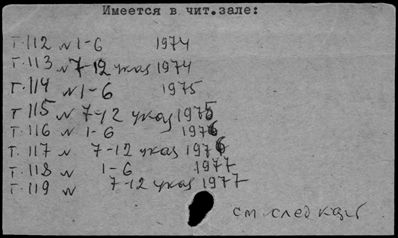 Имеется в чит.зале:
т.112 N 1-6 1974
т.113 N 7-12 указ 1974
т.114 N 1-6 1975
т 115 N 7-12 указ 1975
т.116 N 1-6 1976
т.117 N 7-12 указ 1976
т.118 N 1-6 1977
т.119 N 7-12 указ 1977
см след